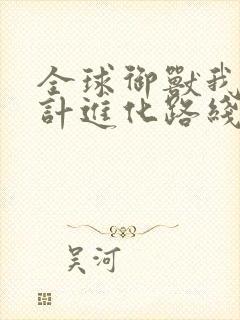 全球御獸我
計進化路綫
吴河